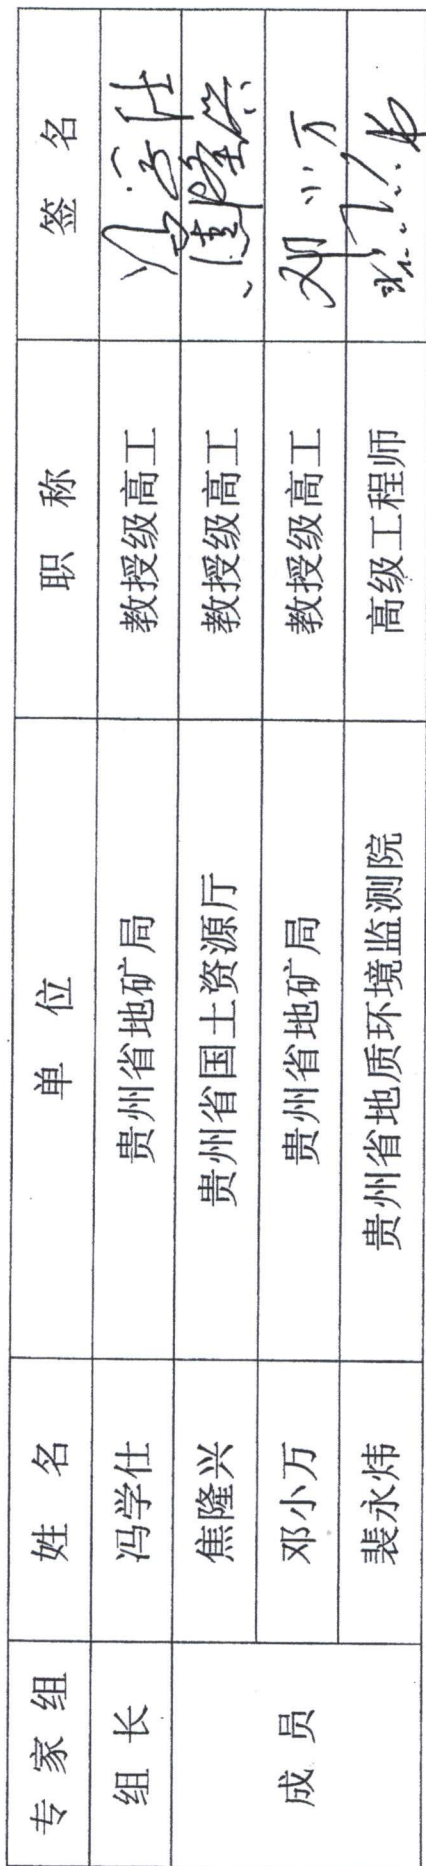 专家组 姓名 单位 职称 签名
组长 冯学仕 贵州省地矿局 教授级高工 冯学仕
成员 焦隆兴 贵州省国土资源厅 教授级高工 焦隆兴
邓小万 贵州省地矿局 教授级高工 邓小万
裴永炜 贵州省地质环境监测院 高级工程师